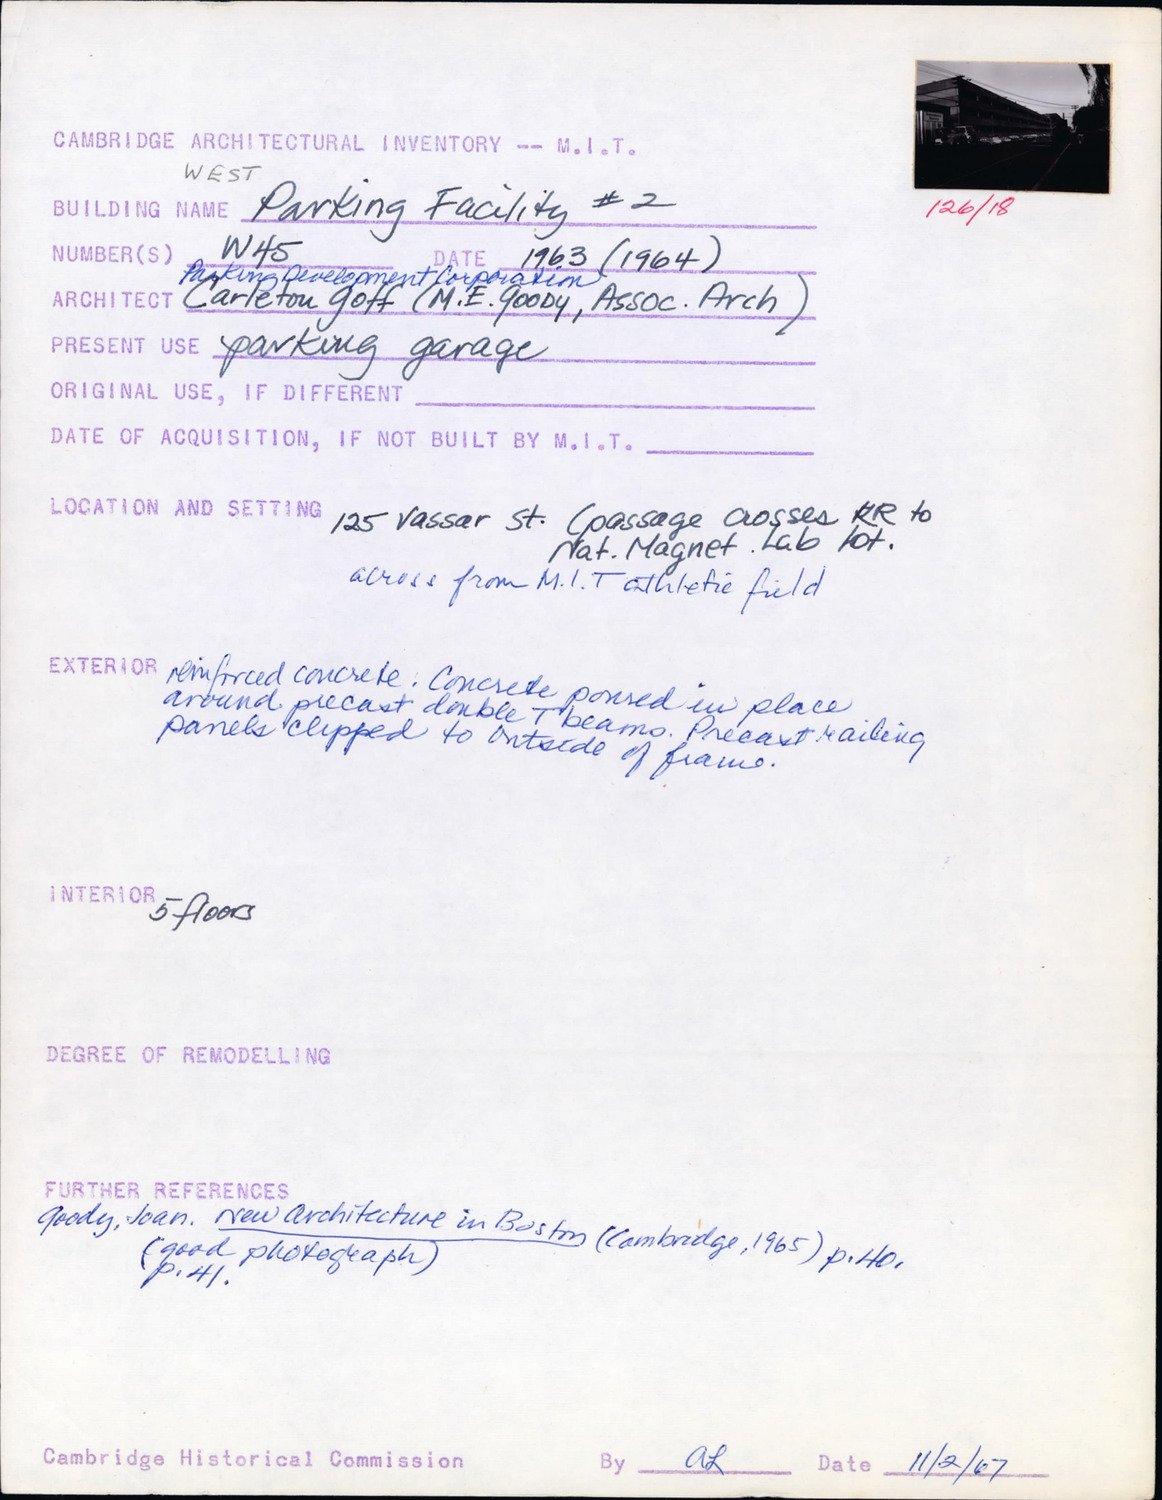 CAMBRIDGE ARCHITECTURAL INVENTORY -- M.I.T.
126/18
WEST
BUILDING NAME Parking Facility #2
NUMBER(S) W45 DATE 1963 (1964)
Parking Development Corporation
ARCHITECT Carleton Goff (M.E. Goody, Assoc. Arch)
PRESENT USE parking garage
ORIGINAL USE, IF DIFFERENT
DATE OF ACQUISITION, IF NOT BUILT BY M.I.T.
LOCATION AND SETTING 125 Vassar St. (passage crosses RR to
Nat. Magnet. Lab lot.
across from M.I.T athletic field
EXTERIOR reinforced concrete. Concrete poured in place
around precast double T beams. Precast railing
panels clipped to outside of frame.
INTERIOR 5 floors
DEGREE OF REMODELLING
FURTHER REFERENCES
Goody, Joan. New Architecture in Boston (Cambridge, 1965) p.40.
(good photograph)
p.41.
Cambridge Historical Commission By AL Date 11/2/67